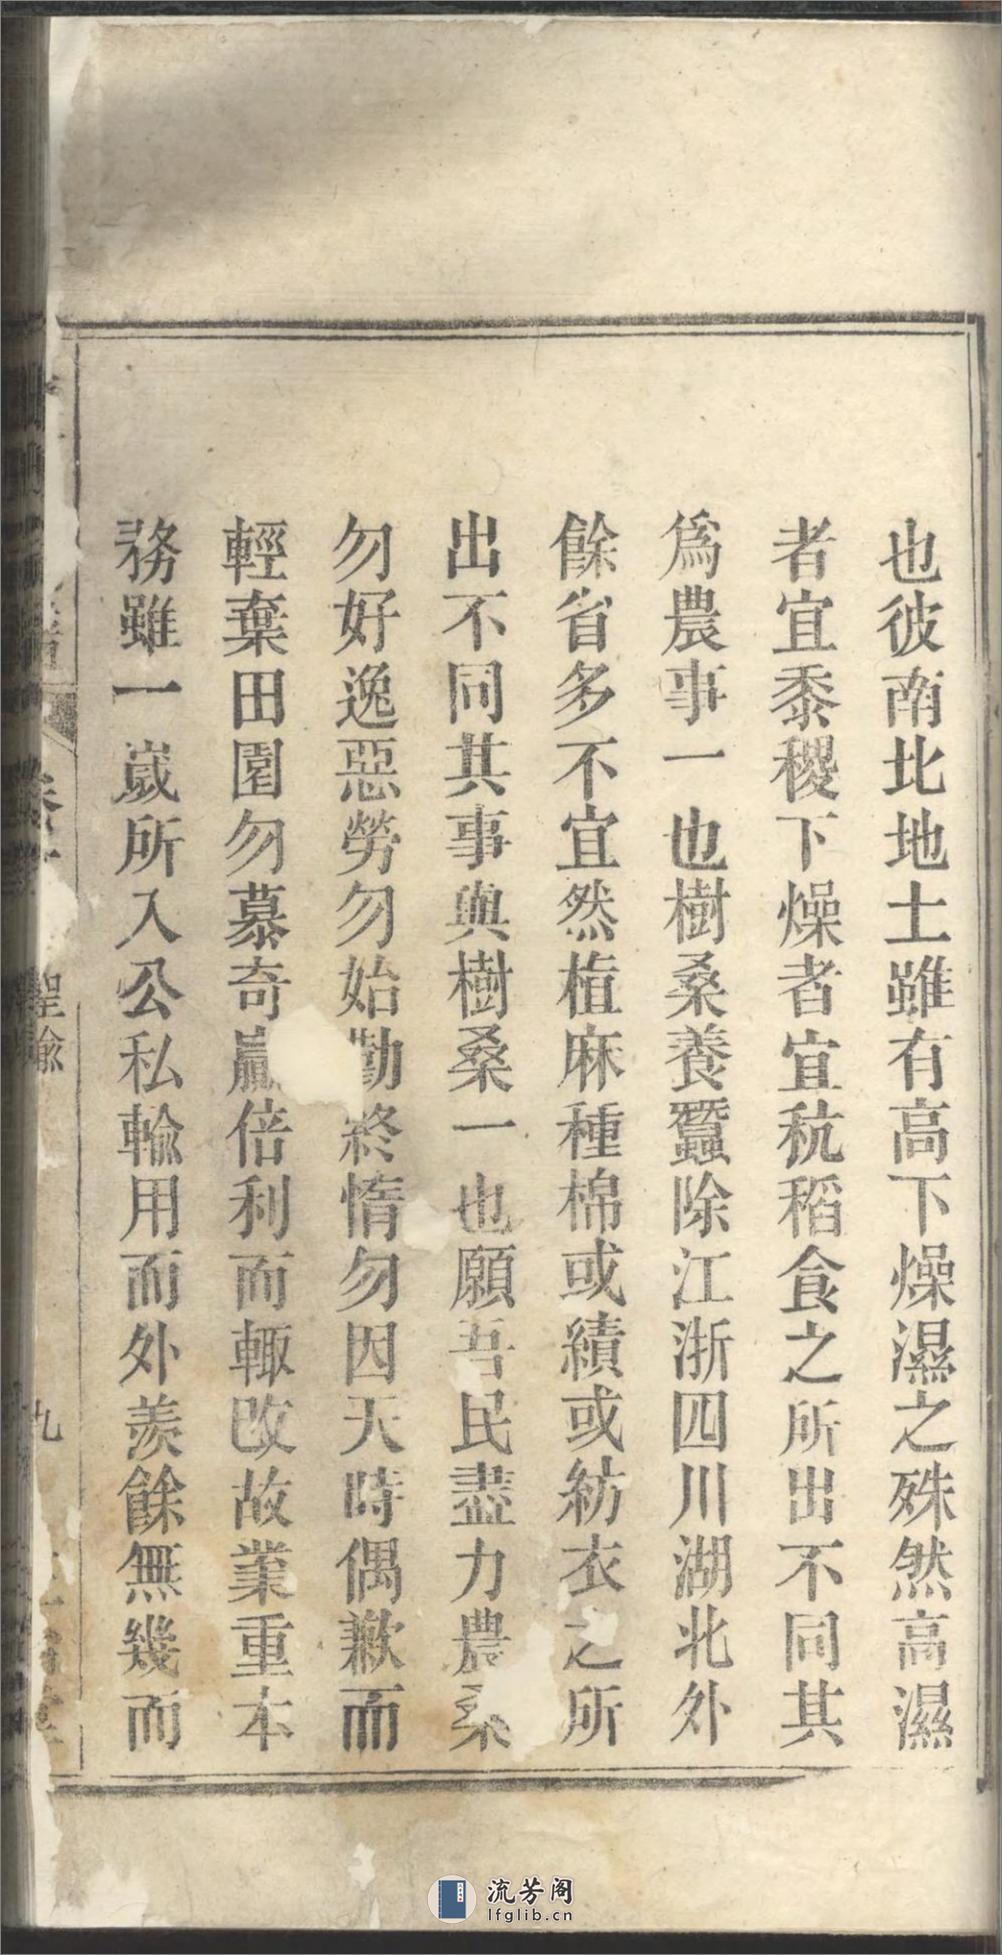 也彼南北地土雖有高下燥濕之殊然高濕
者宜黍稷下燥者宜秔稻食之所出不同其
爲農事一也樹桑養蠶除江浙四川湖北外
餘省多不宜然植麻種棉或績或紡衣之所
出不同其事與樹桑一也願吾民盡力農桑
勿好逸惡勞勿始勤終惰勿因天時偶歉而
輕棄田園勿慕奇贏倍利而輙改故業重本
務雖一嵗所入公私輸用而外羨餘無幾而
聖諭
九
流芳阁
lfglib.cn